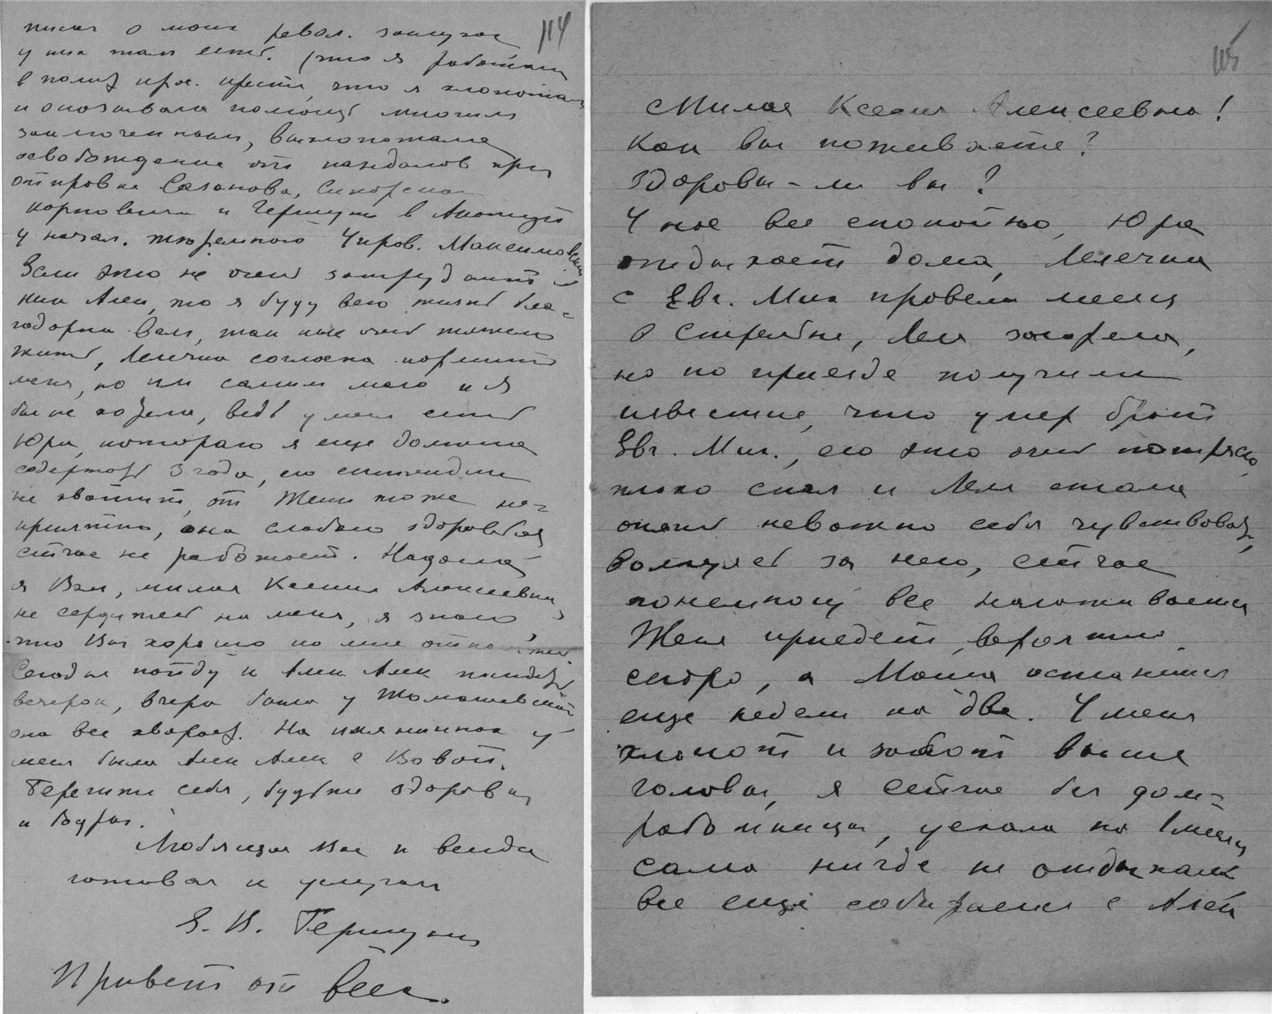 114
писал о моих револ. заслугах
у них там есть. (что я работала
в полит. крас. кресте, что я хлопотала
и оказывала помощь многим
заключенным, выхлопотала
освобождение от кандалов при
отправке Сазонова, Сикорского
Карповича и Гершуни в Акатуй
у начал. тюремного Управ. Максимовского
Если это не очень затруднит
Ник Алек, то я буду всю жизнь бла=
годарна Вам, так как очень тяжело
жить, Лелечка согласна кормить
меня, но им самим мало и я
бы не хотела, ведь у меня есть
Юра, которого я еще должна
содержать 3 года, его стипендии
не хватит, от Жени тоже не=
приятно, она слабого здоровья
сейчас не работает. Надоела
я Вам, милая Ксения Алексеевна,
не сердитесь на меня, я знаю,
что Вы хорошо ко мне относитесь
Сегодня пойду к Алек Алек
вечером, вчера была у Томашевской
она все хворает. На именинах у
меня была Алек Алек с Вовой.
Берегите себя, будьте здоровы
и бодры.
Любящая Вас и всегда
готовая к услугам
Е. И. Гершуни
Привет от всех.
115
Милая Ксения Алексеевна!
Как вы поживаете?
Здоровы-ли вы?
У нас все спокойно, Юра
отдыхает дома, Лелечка
с Евг. Мих провели месяц
в Стрельне, Леля загорела,
но по приезде получили
известие, что умер брат
Евг. Мих., его это очень потрясло,
плохо спал и Леля стала
опять неважно себя чувствовать,
волнуясь за него, сейчас
понемногу все налаживается
Женя приедет, вероятно
скоро, а Маша останется
еще недели на две. У меня
хлопот и забот выше
головы, я сейчас без дом=
работницы, уехала на 1 месяц
сама нигде не отдыхала
все еще собираемся с Алей